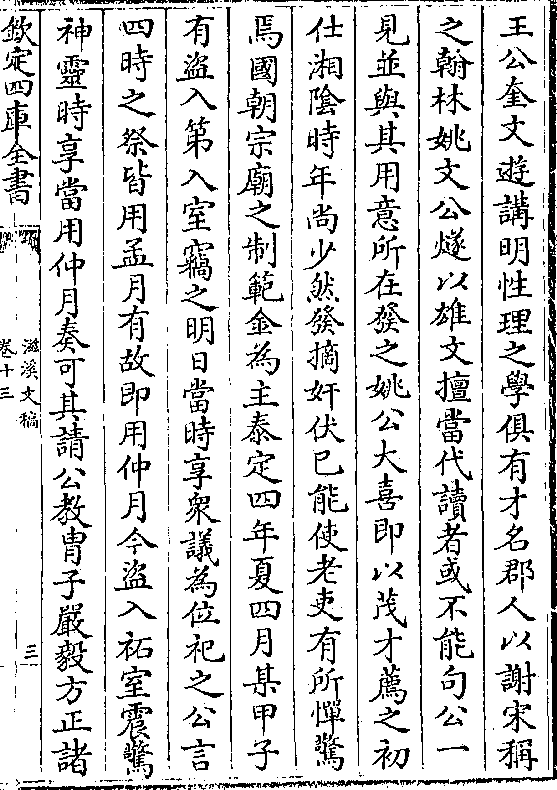 王公奎文遊講明性理之學俱有才名郡人以謝宋稱
之翰林姚文公燧以雄文擅當代讀者或不能句公一
見並與其用意所在發之姚公大喜即以茂才薦之初
仕湘隂時年尚少然發摘奸伏已能使老吏有所憚驚
焉國朝宗廟之制範金為主泰定四年夏四月某甲子
有盜入第八室竊之明日當時享衆議為位祀之公言
四時之祭皆用孟月有故即用仲月今盜入祏室震驚
神靈時享當用仲月奏可其請公教胄子嚴毅方正諸
欽定四庫全書
滋溪文稿
卷十三
三